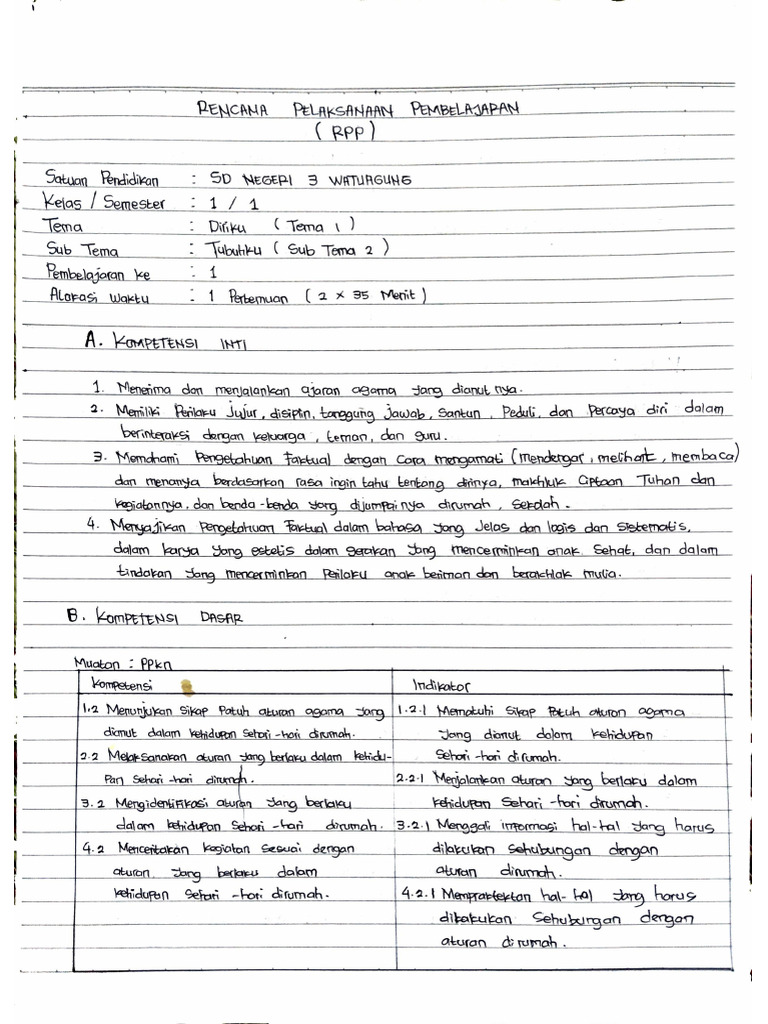 RENCANA PELAKSANAAN PEMBELAJARAN
(RPP)
Satuan Pendidikan : SD NEGERI 3 WATUAGUNG
Kelas / Semester : 1 / 1
Tema : Diriku (Tema 1)
Sub Tema : Tubuhku (Sub Tema 2)
Pembelajaran ke : 1
Alokasi Waktu : 1 Pertemuan (2 x 35 Menit)
A. KOMPETENSI INTI
1. Menerima dan menjalankan ajaran agama yang dianut nya.
2. Memiliki Perilaku jujur, disiplin, tanggung jawab, Santun, Peduli, dan Percaya diri dalam
berinteraksi dengan keluarga, teman, dan guru.
3. Memahami Pengetahuan Faktual dengan Cara mengamati (mendengar, melihat, membaca)
dan menanya berdasarkan rasa ingin tahu tentang dirinya, makhluk Ciptaan Tuhan dan
kegiatannya, dan benda-benda yang dijumpainya dirumah, Sekolah.
4. Menyajikan Pengetahuan Faktual dalam bahasa yang Jelas dan logis dan Sistematis,
dalam karya yang estetis dalam gerakan yang mencerminkan anak Sehat, dan dalam
tindakan yang mencerminkan Perilaku anak beriman dan berakhlak mulia.
B. KOMPETENSI DASAR
Muatan : PPkn
Kompetensi
1.2 Menunjukan Sikap Patuh aturan agama yang
dianut dalam kehidupan Sehari-hari dirumah.
2.2 Melaksanakan aturan yang berlaku dalam kehidu-
Pan Sehari-hari dirumah.
3.2 Mengidentifikasi aturan yang berlaku
dalam kehidupan Sehari-hari dirumah.
4.2 Menceritakan kegiatan Sesuai dengan
aturan yang berlaku dalam
kehidupan Sehari-hari dirumah.
Indikator
1.2.1 Mematuhi Sikap Patuh aturan agama
yang dianut dalam kehidupan
Sehari-hari dirumah.
2.2.1 Menjalankan aturan yang berlaku dalam
kehidupan Sehari-hari dirumah.
3.2.1 Menggali informasi hal-hal yang harus
dilakukan Sehubungan dengan
aturan dirumah.
4.2.1 Mempraktekkan hal-hal yang harus
dikakukan Sehubungan dengan
aturan dirumah.